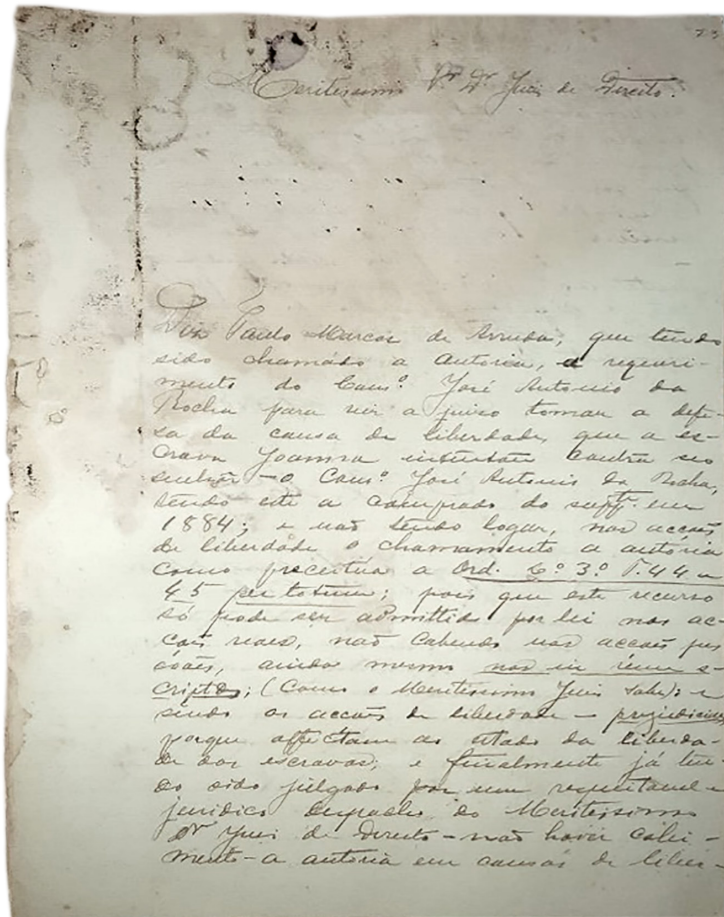 Meritissimo Sr Dr Juiz de Direito.
Diz Paulo Marcos de Arruda, que tendo
sido chamado a autoria, a requeri-
mento do Com.º José Antonio da
Rocha para vir a juizo tomar a defe-
sa da causa de liberdade, que a es-
crava Joanna intentou contra seo
senhor - o Com.º José Antonio da Rocha,
tendo este a comprado do supp.e em
1884; e não tendo logar, nas accoẽs
de liberdade o chamamento a autória
como preceitúa a Ord. L.º 3.º T. 44 e
45 per totum; pois que este recurso
só pode ser admittido por lei nas ac-
coẽs reaes, não cabendo nas accoẽs pes
soaes, ainda mesmo nas in rem s-
criptas; (como o Meritissimo Juiz sabe); e
sendo as accoẽs de liberdade - prejudiciaes,
porque affectam ao estado da liberda-
de dos escravos; e finalmente já ten-
do sido julgado por um respeitavel e
juridico despacho do Meritissimo
Dr Juiz de Direito - não haver cabi-
mento - a autoria em causas de liber-